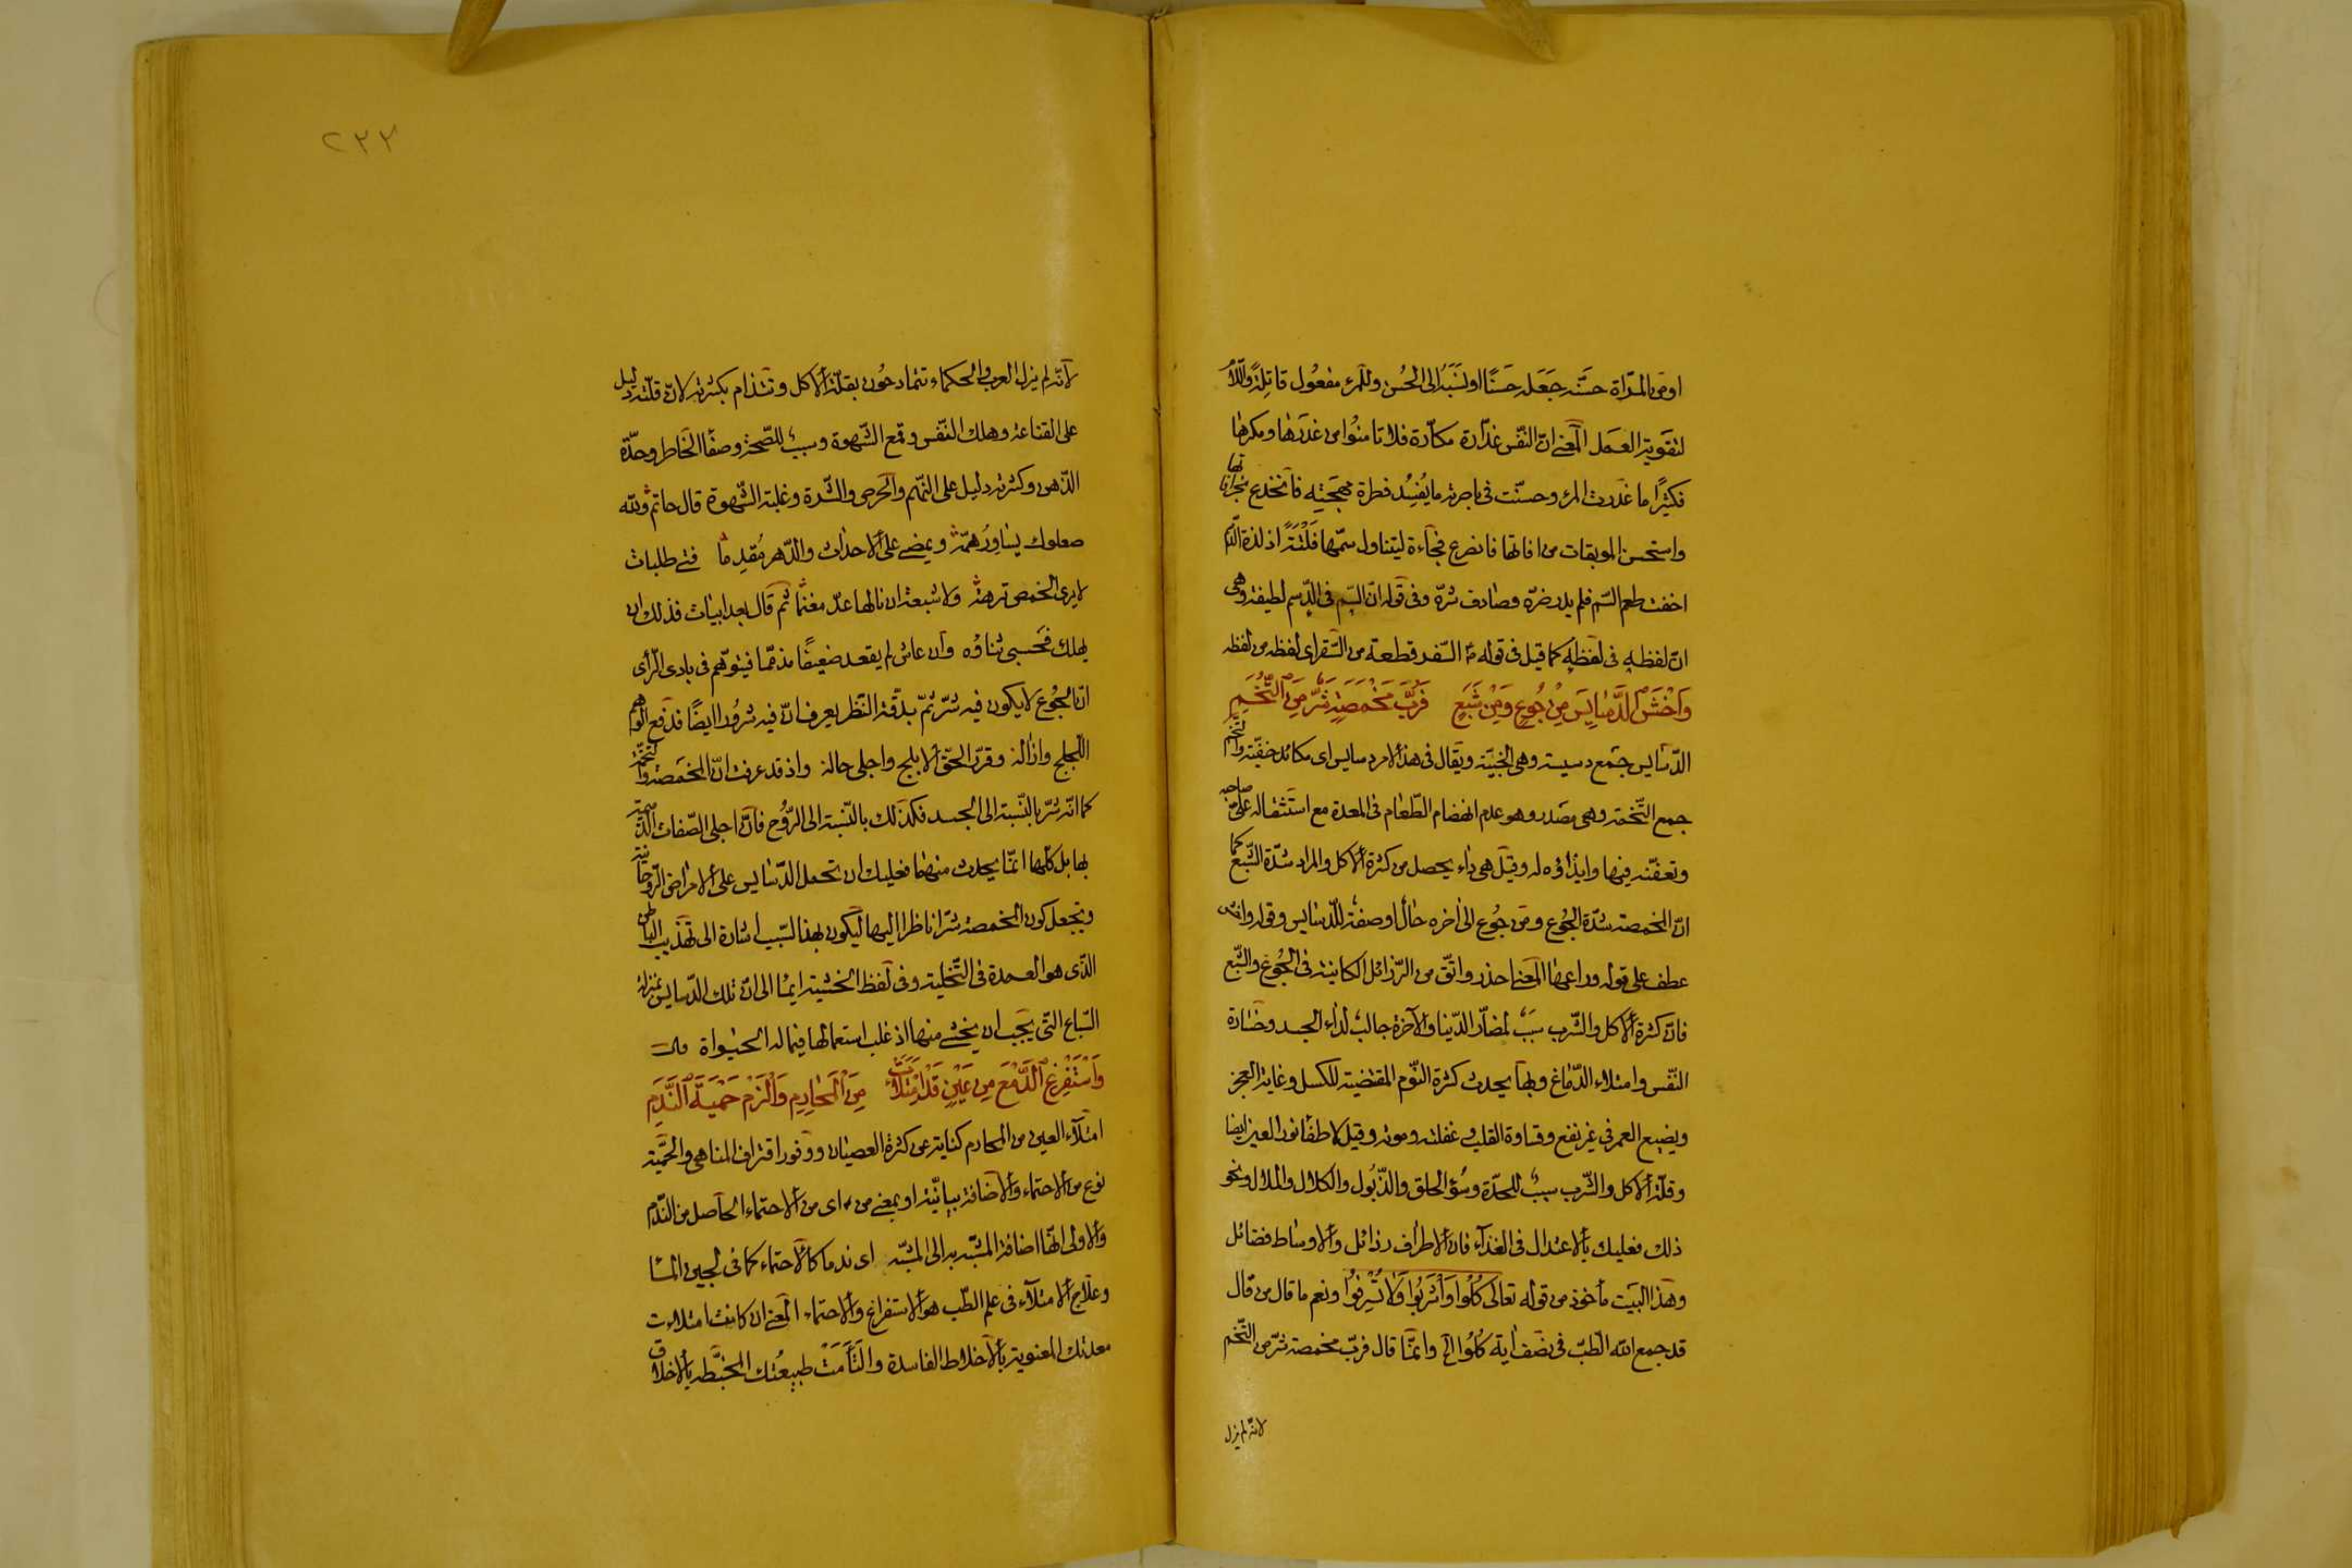 او من المرأة حسّنه جَعَله حَسَنًا او نَسَبَه الى الحُسن وللمرء مفعُول قاتِلةً واللام
لتقوية العمَل المعنى انّ النّفس غدّارة مكّارة فلا تامنُوا من غدرها ومكرها
فكثيرًا ما غدرت المرء وحسّنت فى باصرته ما يُفسِد فطرة مهجته فانخدع
واستحسن الموبقات من افاتها فانصرع فجاءة ليتناول سمّها فَلْتَةً اذ لذة الدّسم
اخفت طعم السّم فلم يدر ضرّه وصادف شرّه وفى قوله انّ السّم فى الدّسم لطيفة وهى
انّ لفظه فى لفظه كما قيل فى قوله السّفر قطعة من السّقر اى لفظه من لفظه
وَاخْشَ الدَّسَايِسَ مِنْ جُوعٍ وَمِنْ شَبَعٍ فَرُبَّ مَخْمَصَةٍ شَرٌّ مِنَ التُّخَمِ
الدّسايس جمع دسيسة وهى الخبيّة ويقال فى هذا الامر دسايس اى مكائد خفيّة والتّخم
جمع التّخمة وهى مصدر وهو عدم انهضام الطّعام فى المعدة مع استثقاله على صاحبه
وتعفّنه فيها وايذاؤه له وقيل هى داء يحصل من كثرة الاكل والمراد شدّة الشّبع كما
انّ المخمصة شدّة الجُوع ومن جُوع الى اخره حالٌ او صفة للدّسايس وقوله واخش
عطف على قوله وراعها المعنى احذر واتّق من الرّزائل الكاينة فى الجُوع والشّبع
فانّ كثرة الاكل والشّرب سببٌ لمضارّ الدّنيا والآخرة جالبٌ لداء الجسد وخسارة
النّفس وامتلاء الدّماغ وبها يحدث كثرة النّوم المقتضية للكسل وغاية العجز
ويضيع العمر فى غير نفع وقساوة القلب وغفلته وموته وقيل لاطفا نور العين ايضا
وقلّة الاكل والشّرب سببٌ للحدّة وسُؤ الخلق والذّبُول والكلال والملال ونحو
ذلك فعليك بالاعتدال فى الغذاء فانّ الاطراف رذائل والاوساط فضائل
وهذا البيت مأخوذ من قوله تعالى كُلُوا وَاشْرَبُوا وَلَا تُسْرِفُوا ونعم ما قال من قال
قد جمع الله الطّبّ فى نصف اية كُلُوا الخ وانّما قال فربّ مخمصة شرّ من التّخم
لانّه لم يزل
٢٣٢
لانّه لم يزل العرب والحكماء تتمادحُون بقلّة الاكل وتتذام بكثرته لانّ قلّته دليل
على القناعة وملك النّفس وقمع الشّهوة وسببٌ للصّحة وصفا الخاطر وحدّة
الذّهن وكثرته دليل على النّهم والحرص والشّره وغلبة الشّهوة قال حاتم ولله
صعلوك يساوِرُ همّه ويمضى على الاحداث والدّهر مُقدِما فتى طلبات
لا يرى الخمص ترحة ولا شبعة ان نالها عدّ مغنما ثم قال بعد ابيات فذلك ان
يهلك فحسبى ثناؤه وان عاش لم يقعد ضعيفًا مذمّما فيتوهّم فى بادى الرّأى
انّ الجُوع لا يكون فيه شرّ ثمّ بدقّة النّظر يعرف انّ فيه شرُورا ايضًا فدفع الوهم
اللّجلج وازاله وقرّر الحقّ الابلج واجلى حاله واذ قد عرفت انّ المخمصة والتّخمة
كما انّه شرّ بالنّسبة الى الجسد فكذلك بالنّسبة الى الرّوُح فانّ اجلى الصّفات الذّميمة
بها بل كلّها انّما يحدث منهما فعليك ان تحمل الدّسايس على الامراض الرّوحانيّة
وتجعل كون المخمصة شرّا ناظرا اليها ليكون بهذا السّبب اشارة الى تهذيب الباطن
الذّى هو العمدة فى التّخلية وفى لفظ الخشية ايما الى انّ تلك الدّسايس بمنزلة
السّباع التّى يجب ان يخشى منها اذ غلب استعمالها فيما له الحيواة قال
وَاسْتَفْرِغِ الدَّمْعَ مِنْ عَيْنٍ قَدِ امْتَلَأَتْ مِنَ الْمَحَارِمِ وَالْزَمْ حِمْيَةَ النَّدَمِ
امتلاء العين من المحارم كناية عن كثرة العصيان ووفور اقتراف المناهى والحمية
نوع من الاحتماء والاضافة بيانيّة او بمعنى من اى من الاحتماء الحاصل من النّدم
والاولى انّها اضافة المشبّه به الى المشبّه اى ندما كالاحتماء كما فى لجين الما
وعلاج الامتلاء فى علم الطّب هو الاستفراغ والاحتماء المعنى ان كانت امتلاءت
معدتك المعنوية بالاخلاط الفاسدة والتَأمَتْ طبيعتك المخبّطه بالاخلاق